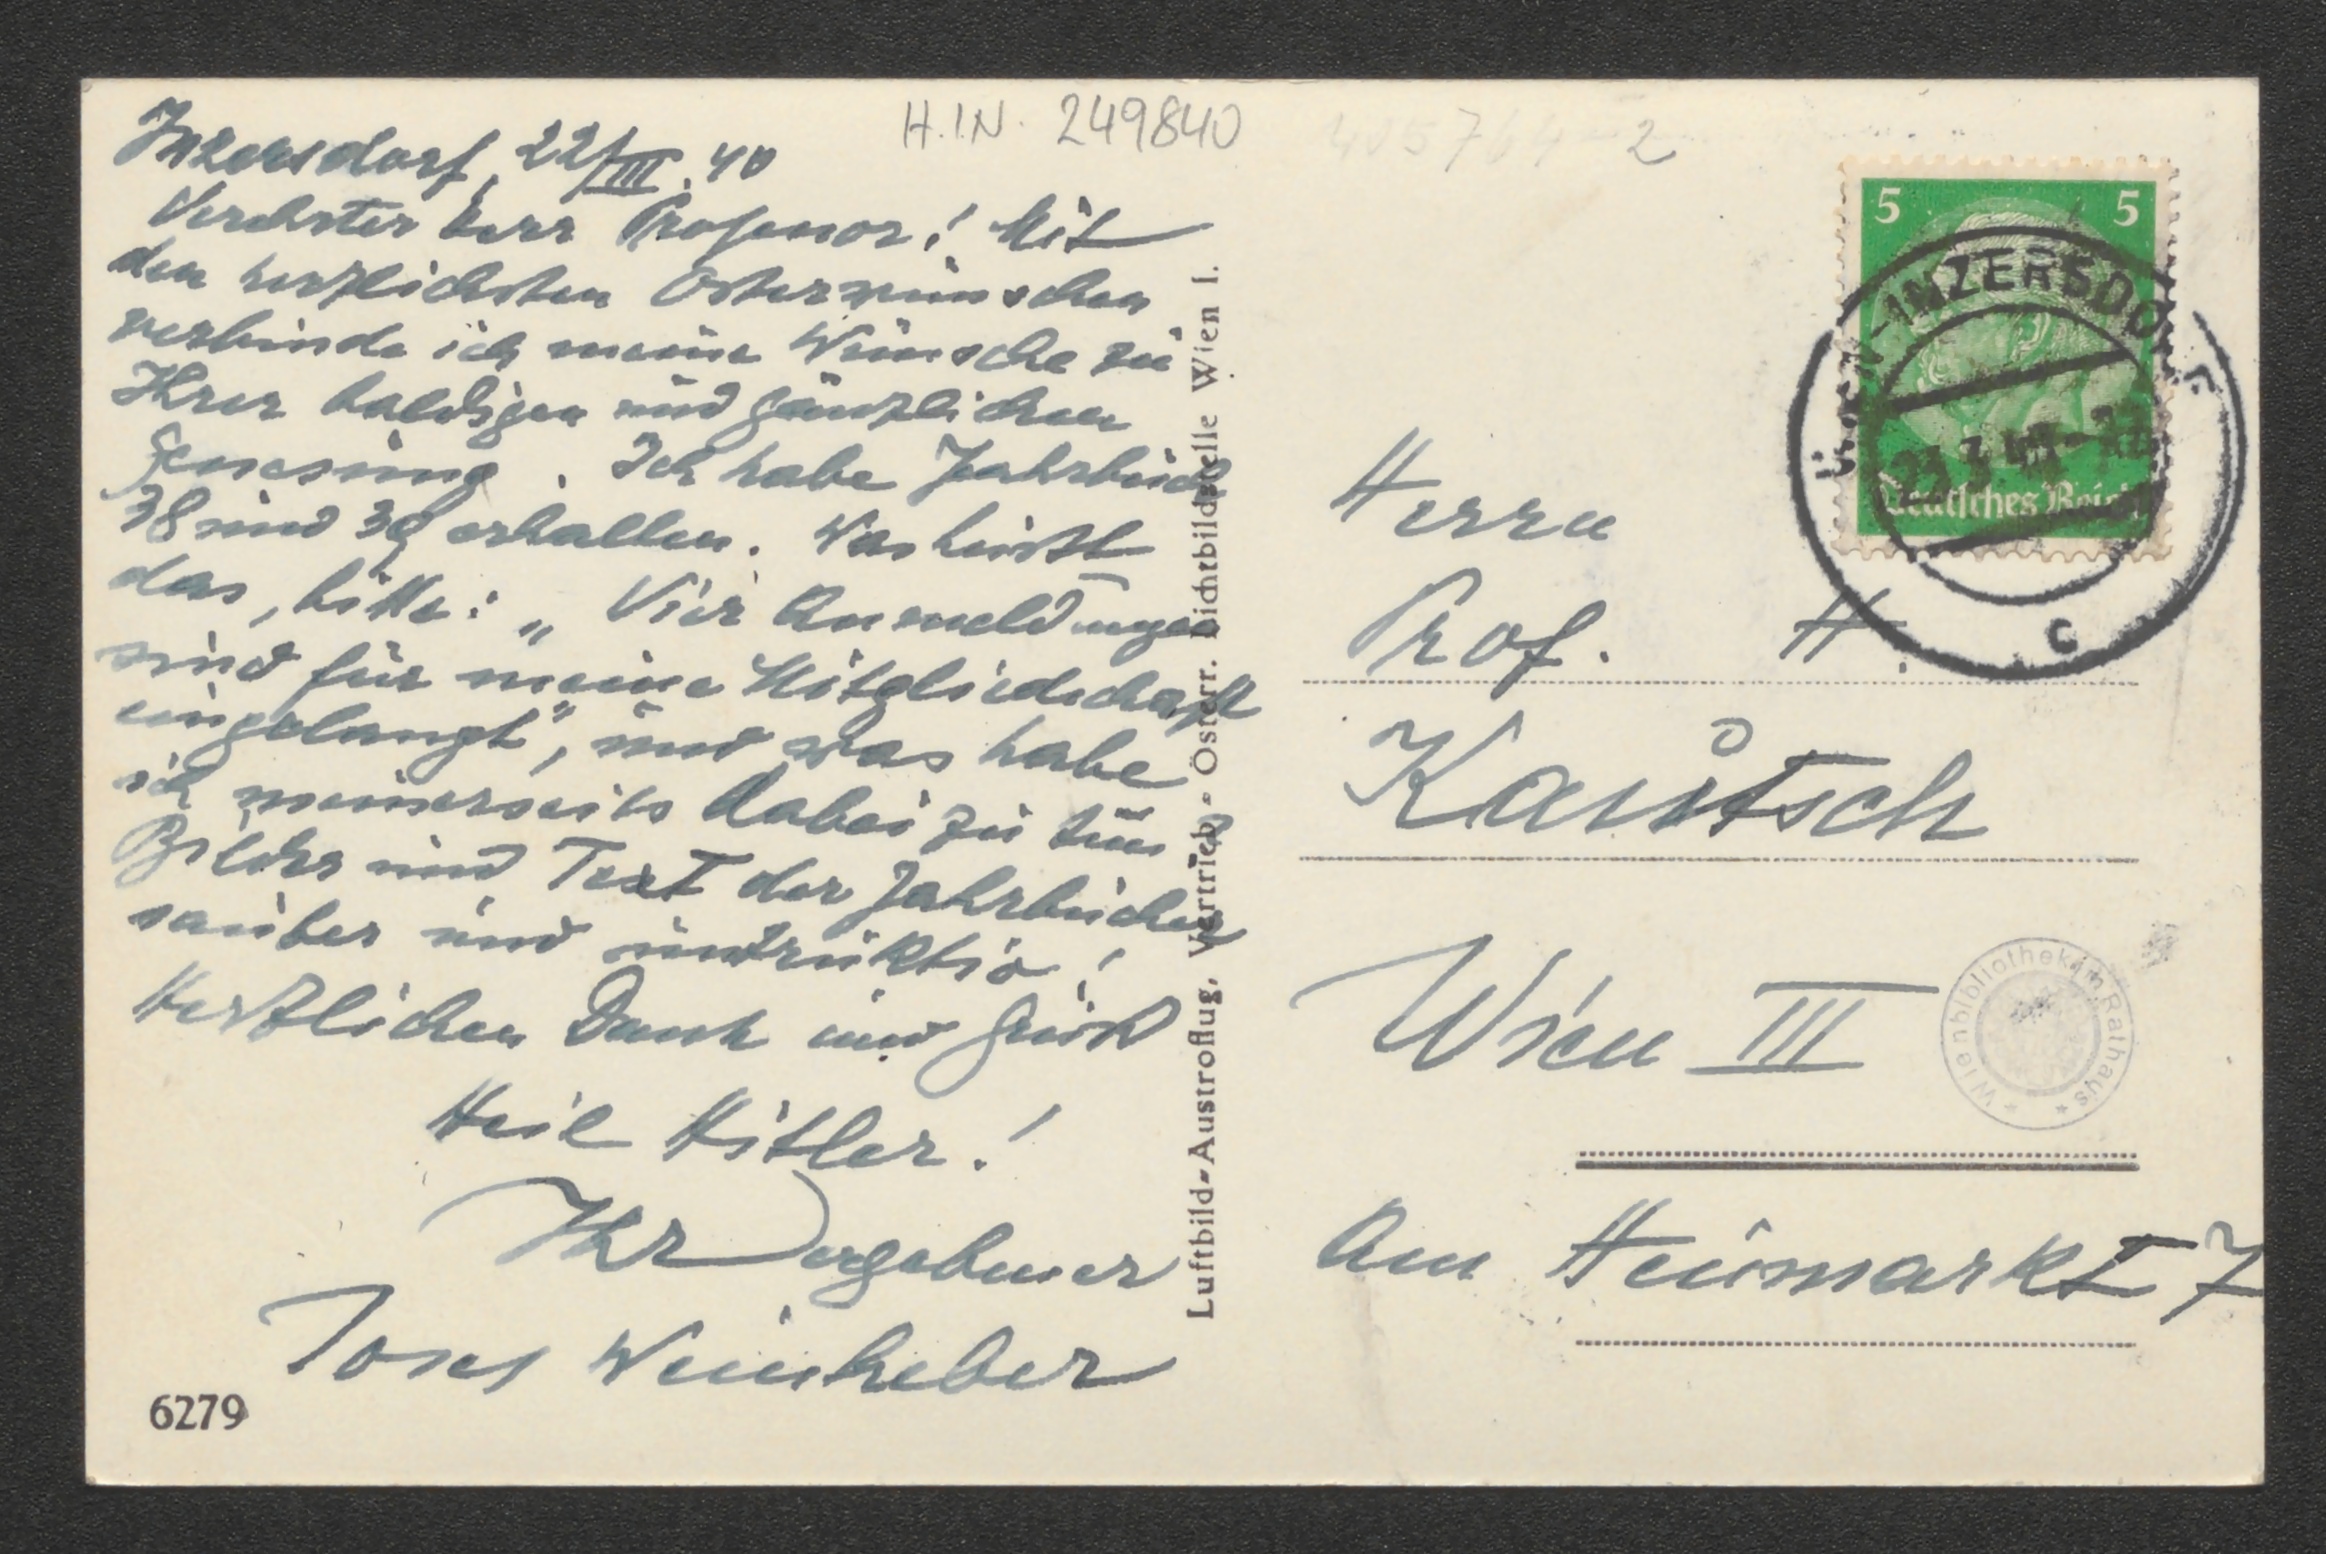 H.I.N. 249840
2
Inzersdorf, 22/III. 40
Verehrter Herr Professor! Mit
den herzlichsten Osterwünschen
verbinde ich meine Wünsche zu
Ihrer baldigen und gänzlichen
Genesung. Ich habe Jahrbuch
38 und 39 erhalten. Was heißt
das, bitte: „Vier Anmeldungen
sind für meine Mitgliedschaft
eingelangt", und was habe
ich meinerseits dabei zu tun?
Bilder und Text der Jahrbücher
sauber und instruktiv!
Herzlichen Dank und Gruß
Heil Hitler!
Ihr ergebener
Josef Weinheber
6279
Luftbild-Austroflug, Vertrieb - Österr. Lichtbildstelle Wien I.
5 5
Deutsches Reich
WIEN-INZERSDORF
23.3.40
c
Herrn
Prof. H.
Kautsch
Wien III
Am Heumarkt 7
Wienbibliothek im Rathaus